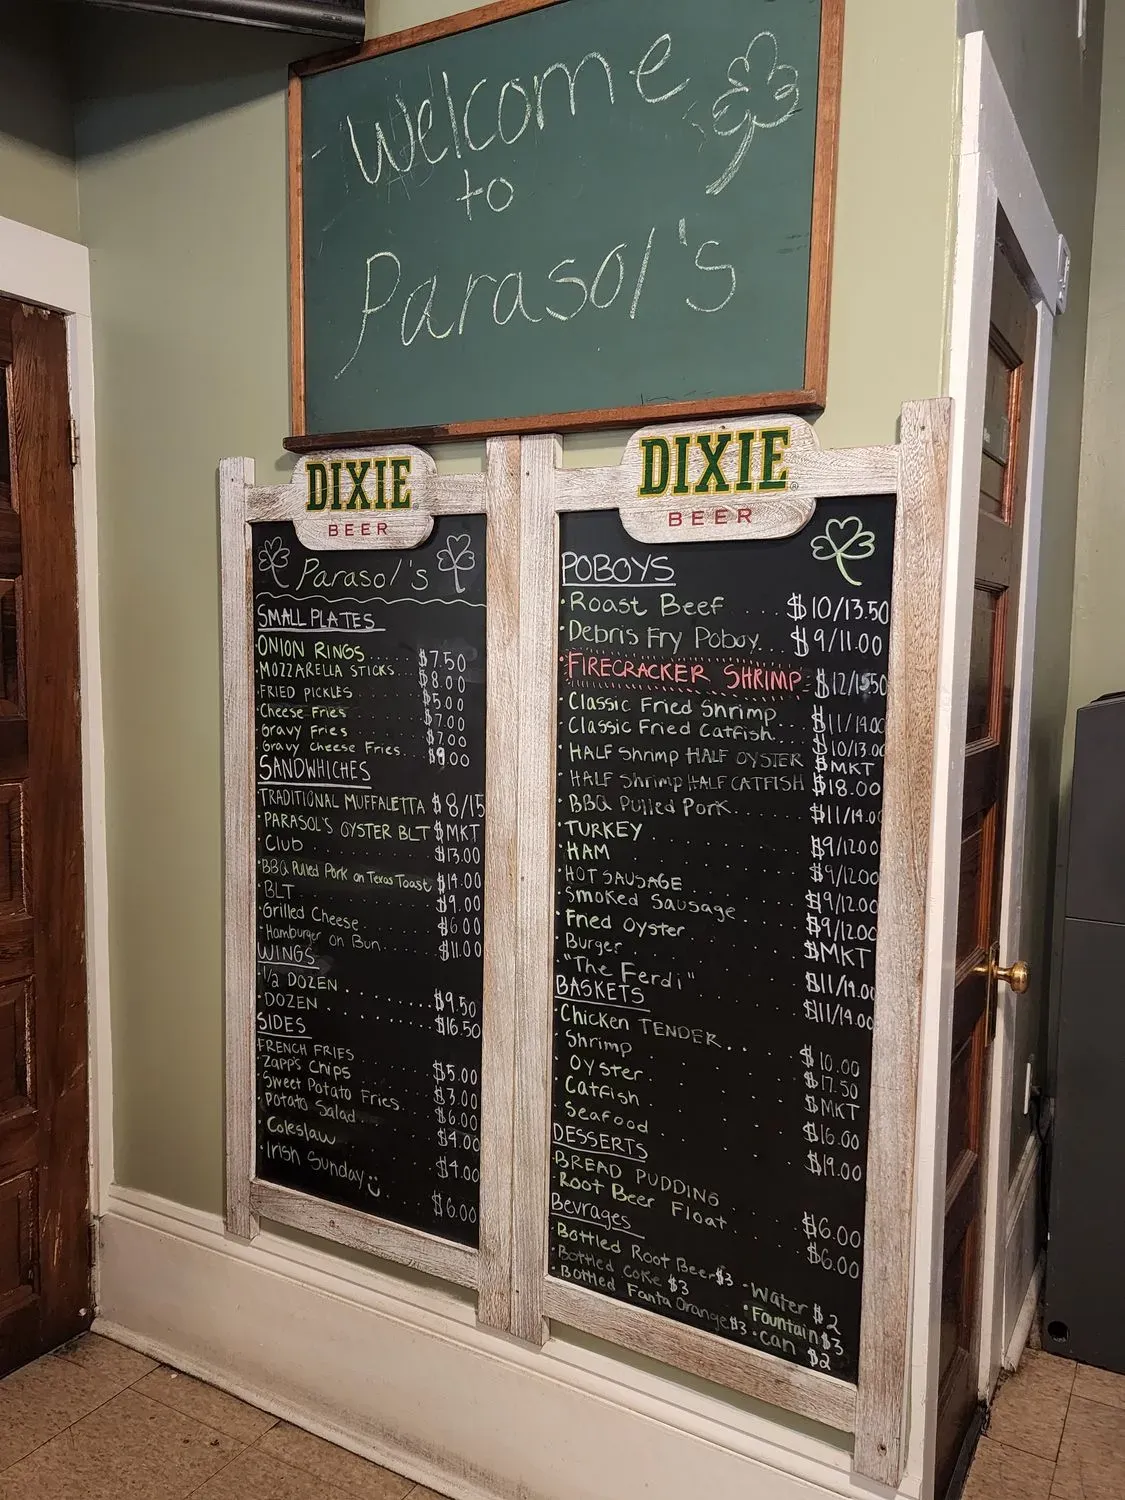 Welcome
to
Parasol's
DIXIE
BEER
Parasol's
SMALL PLATES
ONION RINGS .... $7.50
MOZZARELLA STICKS.. $8.00
FRIED PICKLES $5.00
Cheese Fries $7.00
Gravy Fries $7.00
Gravy Cheese Fries. $9.00
SANDWHICHES
TRADITIONAL MUFFALETTA $8/15
PARASOL'S OYSTER BLT $MKT
Club $13.00
BBQ Pulled Pork on Texas Toast $14.00
BLT $9.00
Grilled Cheese $6.00
Hamburger on Bun $11.00
WINGS
1/2 DOZEN $9.50
DOZEN $16.50
SIDES
FRENCH FRIES $5.00
ZAPPS CHIPS $3.00
Sweet Potato Fries $6.00
Potato Salad $4.00
Coleslaw $4.00
Irish Sunday $6.00
DIXIE
BEER
POBOYS
Roast Beef ... $10/13.50
Debris Fry Poboy. $9/11.00
FIRECRACKER SHRIMP $12/15.50
Classic Fried Shrimp $11/14.00
Classic Fried Catfish. $10/13.00
HALF Shrimp HALF OYSTER $MKT
HALF Shrimp HALF CATFISH $18.00
BBQ Pulled Pork $11/14.00
TURKEY $9/12.00
HAM $9/12.00
HOT SAUSAGE $9/12.00
Smoked Sausage $9/12.00
Fried Oyster $MKT
Burger $11/14.00
"The Ferdi" $11/14.00
BASKETS
Chicken TENDER $10.00
Shrimp $17.50
Oyster $MKT
Catfish $16.00
Seafood $19.00
DESSERTS
BREAD PUDDING $6.00
Root Beer Float $6.00
Bevrages
Bottled Root Beer $3
Bottled Coke $3
Bottled Fanta Orange $3
Water $2
Fountain $3
Can $2